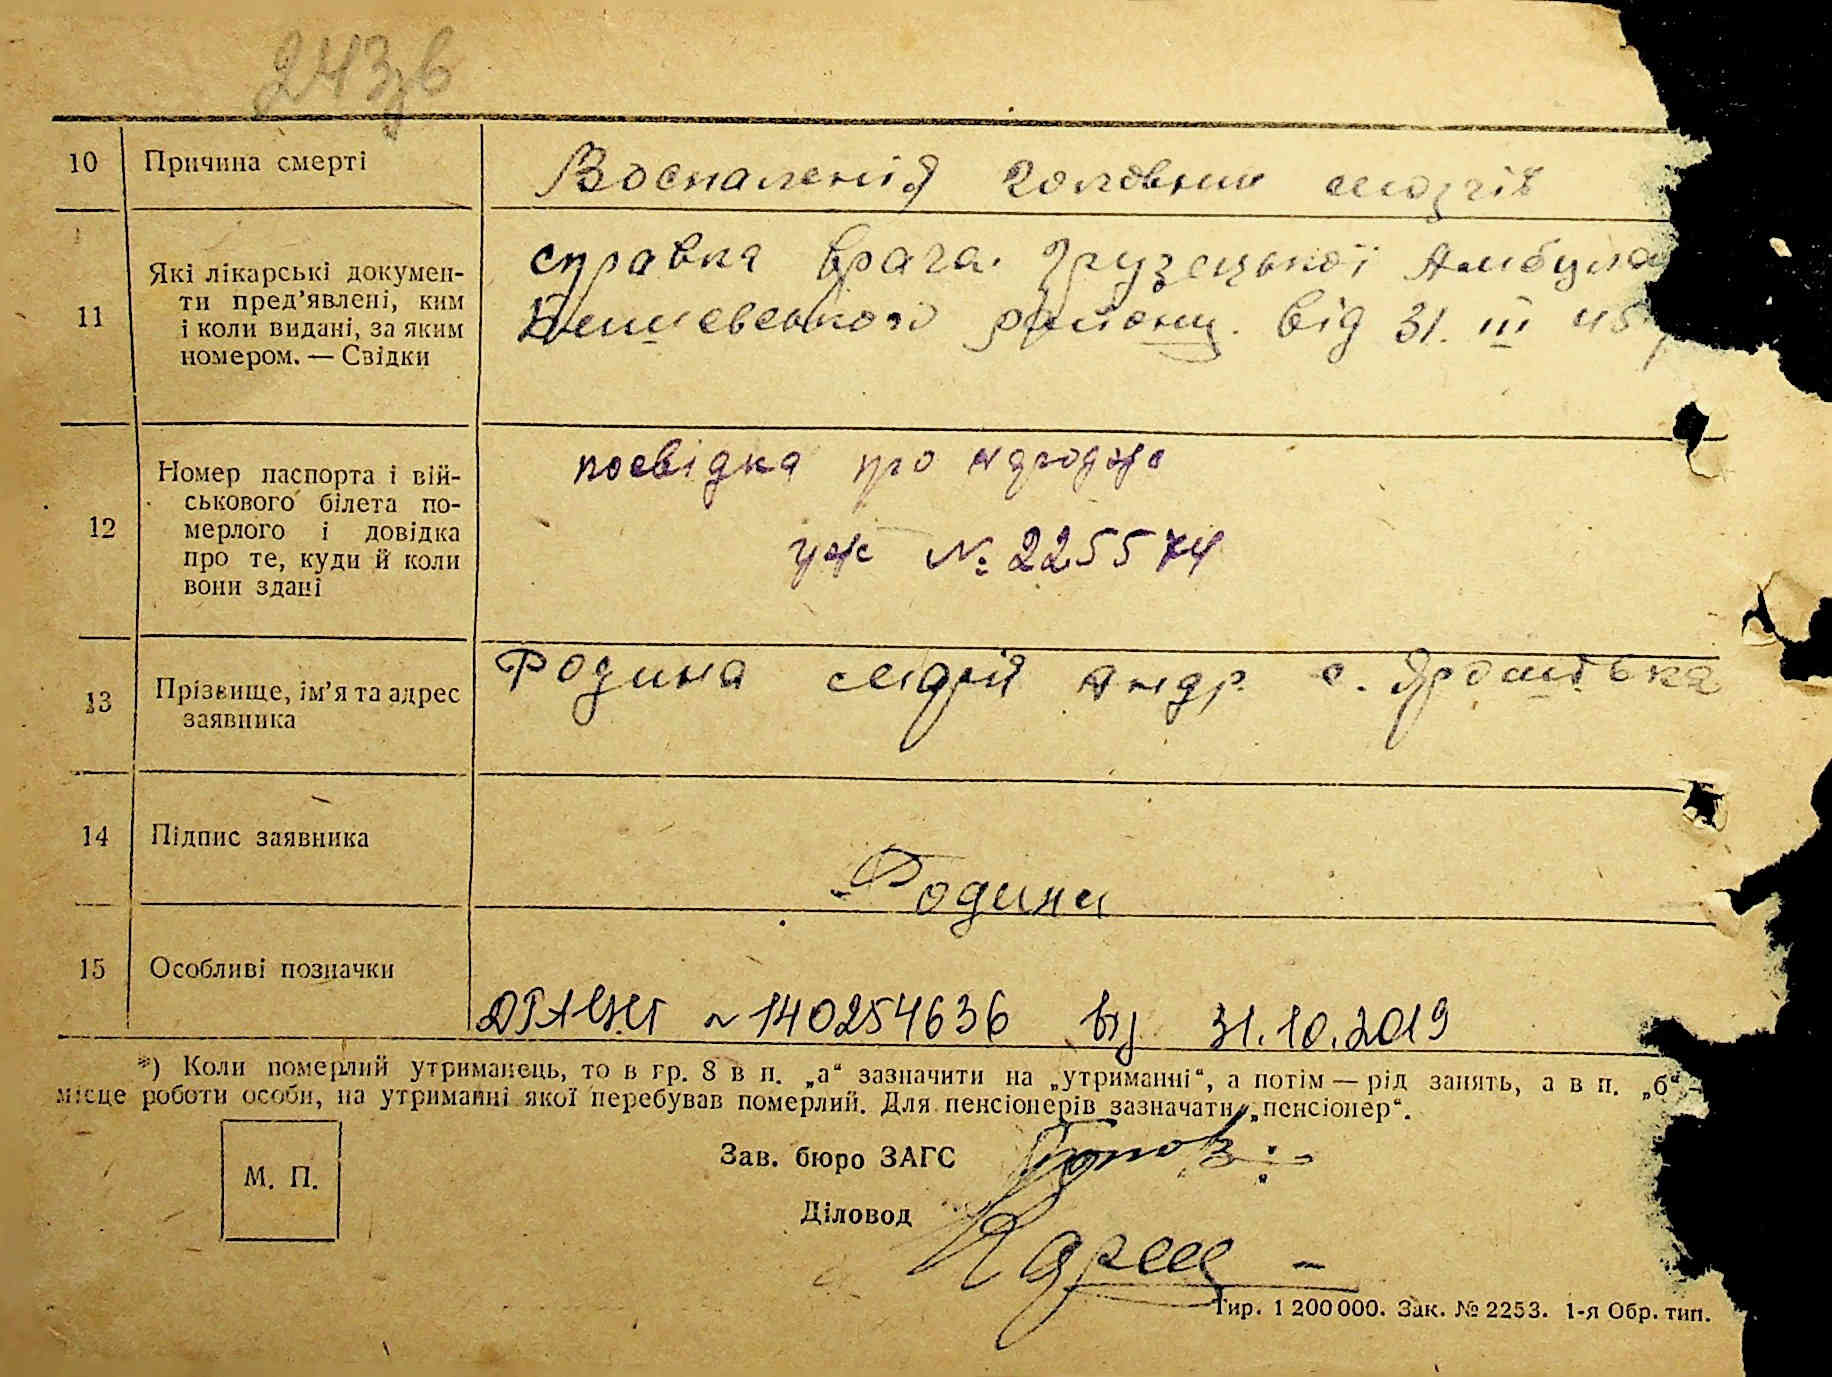 243зв
10 Причина смерті Воспаленія головних мозгів
11 Які лікарські докумен-
ти пред’явлені, ким
і коли видані, за яким
номером. — Свідки
справка врача. Грузецької Амбула
району. від 31. III 45 р
12 Номер паспорта і вій-
ськового білета по-
мерлого і довідка
про те, куди й коли
вони здані
посвідка про
№ 225574
13 Прізвище, ім’я та адрес
заявника
Родина Марія Андр. с.
14 Підпис заявника
Родини
15 Особливі позначки
ДРАЦСГ ~140254636 від 31.10.2019
*) Коли померлий утриманець, то в гр. 8 в п. „а“ зазначити на „утриманні“, а потім — рід занять, а в п. „б“ —
місце роботи особи, на утриманні якої перебував померлий. Для пенсіонерів зазначати „пенсіонер“.
М. П.
Зав. бюро ЗАГС
Діловод
Тир. 1 200 000. Зак. № 2253. 1-я Обр. тип.